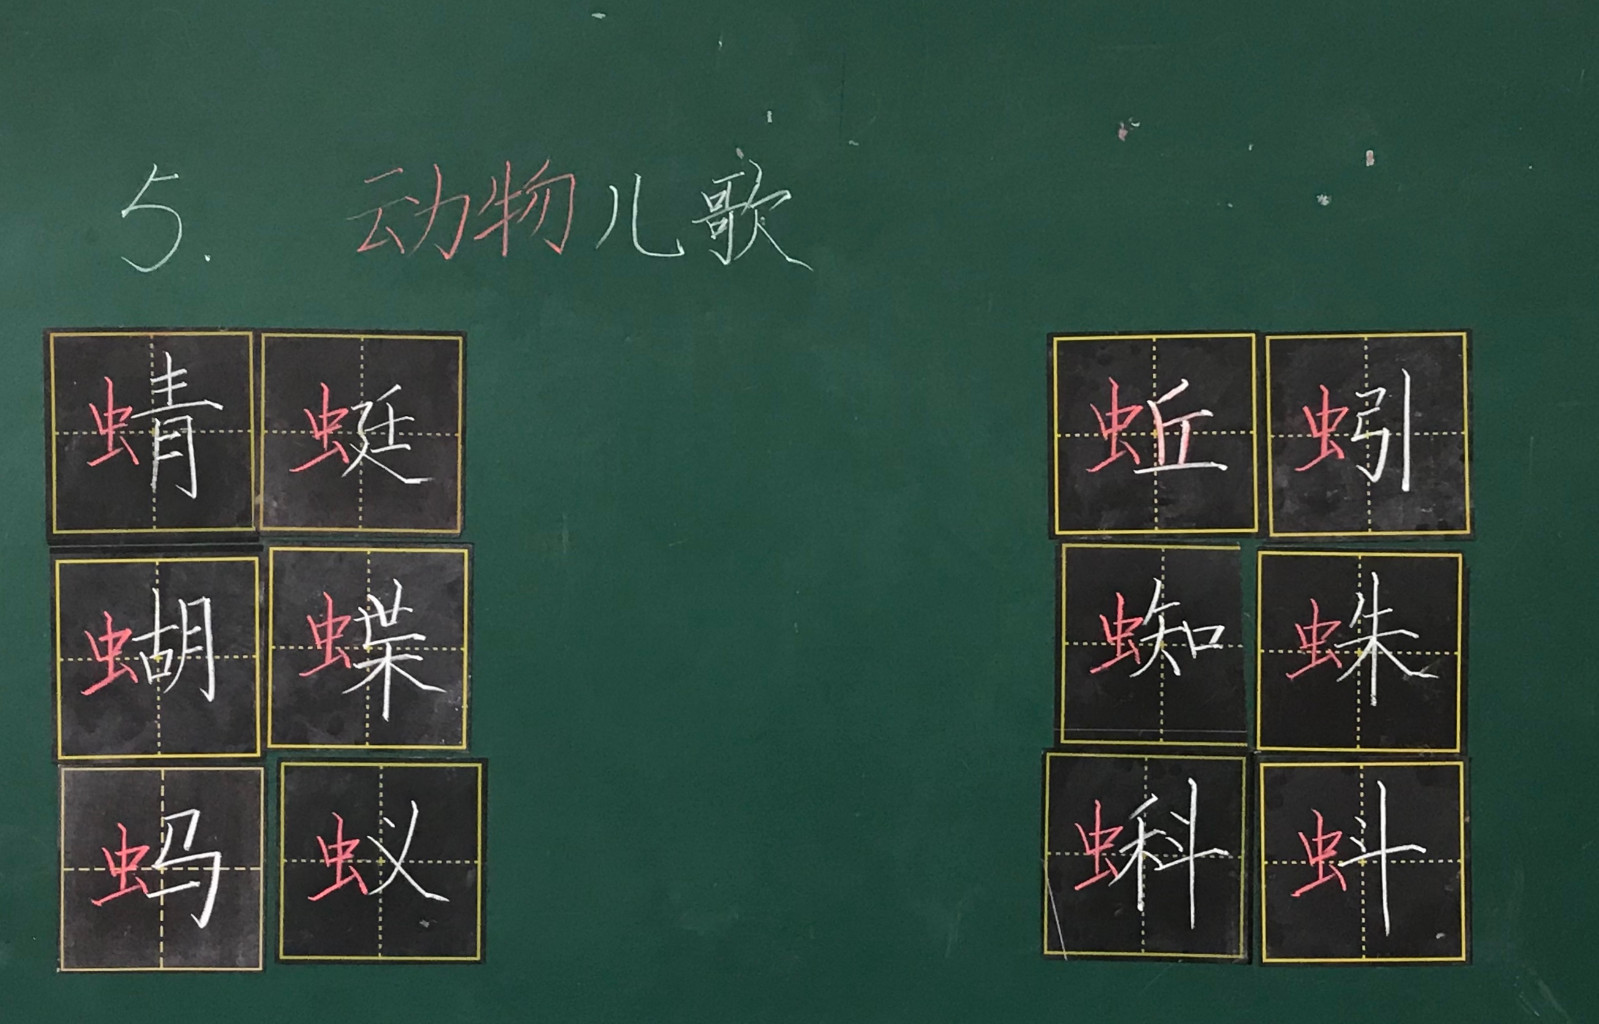 5. 动物儿歌
蜻蜓 蚯蚓
蝴蝶 蜘蛛
蚂蚁 蝌蚪